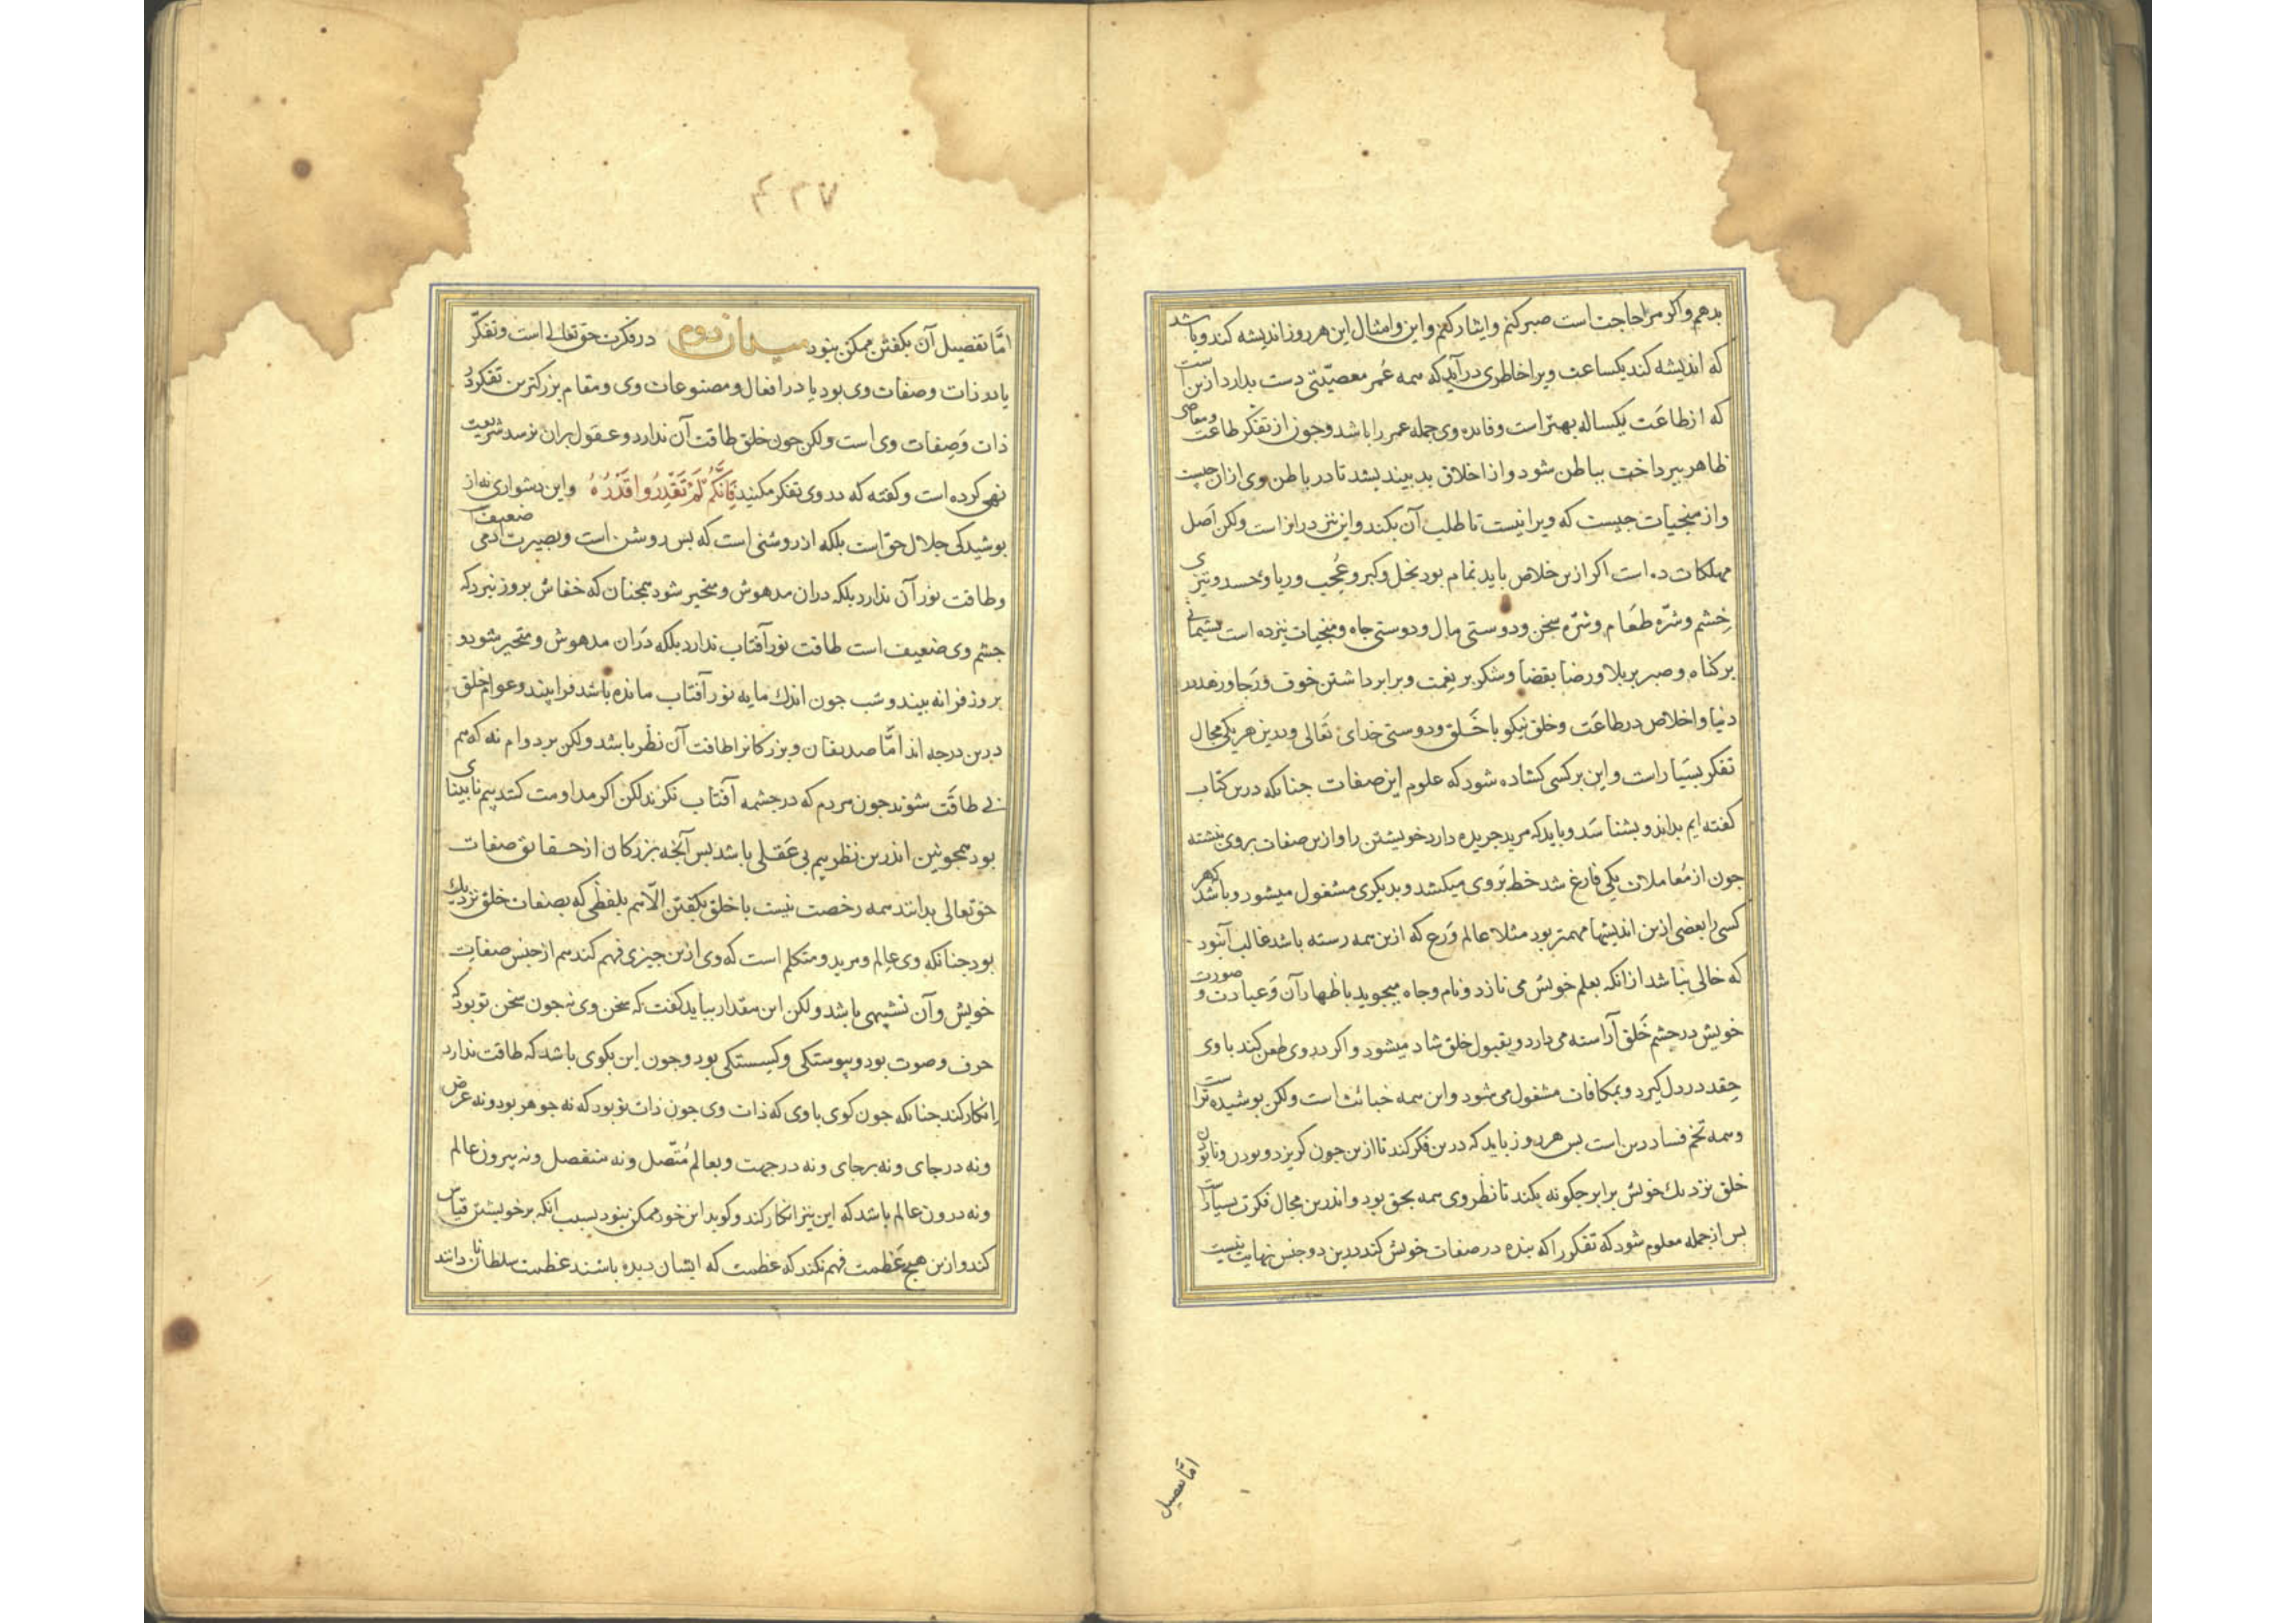 بدهم و اکر مرا حاجت است صبر کنم و ایثار کنم و این و امثال این هر روز اندیشه کند و باشد
که اندیشه کند یکساعت ویرا خاطری درآید که همه عُمر معصیّتی دست بدارد ازین است
که از طاعَت یکساله بهتر است و فایده وی جمله عمر را باشد و چون از تفکر طاعت و معاصی
ظاهر بپرداخت بباطن شود و از اخلاق بد بیندیشد تا در باطن وی ازان چیست
و از منجیات چیست که ویرا نیست تا طلب آن بکند و این نیز دراز است ولکن اَصل
مهلکات ده است اکر ازین خلاص یابد تمام بود بخل و کبر و عُجب و ریا و حسد و تیزی
خِشم و شرّه طعَام و شرّه سخن و دوستی مال و دوستی جاه و منجیات نیز ده است پشیمانی
بر کناه و صبر بر بلا و رضا بقضا و شکر بر نِعمت و برابر داشتن خوف و رَجا و زهد در
دنیا و اخلاص در طاعَت و خلق نیکو با خَلق و دوستی خدای تَعالی و درین هر یکی مجال
تفکر بسیَار است و این بر کسی کشاده شود که علوم این صفات جنانکه درین کتاب
کفته ایم بداند و بشناسَد و باید که مرید جریده دارد خویشتن را و ازین صفات بر وی نبشته
جون از مُعاملات یکی فارغ شد خط بَر وی میکشد و بدیکری مشغول میشود و باشد که هر
کسی را بعضی ازین اندیشها مهمتر بود مثلا عالم وَرع که ازین همه رسته باشد غالب آنبود
که خالی نباشد ازانکه بعلم خویش می نازد و نام و جاه میجوید باظهار آن وَ عبادت و صورت
خویش در چشم خَلق آراسته می دارد و بقبول خلق شاد میشود و اکر در وی طعن کنند با وی
حِقد در دل کیرد و بمکافات مشغول می شود و این همه خبائث است ولکن پوشیده تر است
و همه تخم فساد دین است پس هر روز باید که درین فکر کند تا ازین جون کریزد و بودن و نابودن
خلق نزدیك خویش برابر جکونه بکند تا نظر وی همه بحق بود و اندرین مجال فکرت بسیار است
پس از جمله معلوم شود که تفکر را که بنده در صفات خویش کند درین دو جنس نهایت نیست
امّا تفصیل
۴۲۷
امّا تفصیل آن بکفتن ممکن نبود میدان دوم در فکرت حق تعالی است و تفکّر
یا در ذات و صفات وی بود یا در افعال و مصنوعات وی و مقام بزرکترین تفکر در
ذات وَ صِفات وی است ولکن جون خلق طاقت آن ندارد و عقول بران نرسد شریعت
نهی کرده است و کفته که در وی تفکر مکنید فَاِنَّکُم لَمْ تَقْدِرُوا قَدْرَهُ و این دشواری نه از
پوشیدکی جلال حق است بلکه از روشنی است که بس روشن است و بصیرت آدمی ضعیف است
و طاقت نور آن ندارد بلکه دران مدهوش و متحیر شود همجنان که خفاش بروز نپرد که
جشم وی ضعیف است طاقت نور آفتاب ندارد بلکه دَران مدهوش و متحیر شود و
بروز فرا نه بیند و شب جون اندك مایه نور آفتاب مانده باشد فرا بیند و عوام خلق
درین درجه اند امّا صدیقان و بزرکانرا طاقت آن نظر باشد ولکن بر دوام نه که هم
بی طاقت شوند جون مردم که در جشمه آفتاب نکرند لکن اکر مداومت کنند بیم نابینایی
بود همجونین اندرین نظر بیم بی عَقلی باشد پس آنجه بزرکان از حقایق صفات
حق تعالی بدانند همه رخصت نیست با خلق بکفتن الّا هم بلفظی که بصفات خلق نزدیك
بود جنانکه وی عالِم و مرید و متکلم است که وی ازین جیزی فهم کند هم از جنس صفات
خویش و آن تشبیهی باشد ولکن این مقدار بباید کفت که سخن وی نه جون سخن تو بود که
حرف و صوت بود و پیوستکی و کسستکی بود و جون این بکوی باشد که طاقت ندارد
انکار کند جنانکه جون کوی با وی که ذات وی جون ذات تو بود که نه جوهر بود و نه عرض
و نه در جای و نه بر جای و نه در جهت و بعالم مُتّصل و نه منفصل و نه بیرون عالم
و نه درون عالم باشد که این نیز انکار کند و کوید این خود ممکن نبود بسبب آنکه بر خویشتن قیاس
کند و ازین هیج عَظمت فهم نکند که عظمت که ایشان دیده باشند عظمت سلطانان دانند